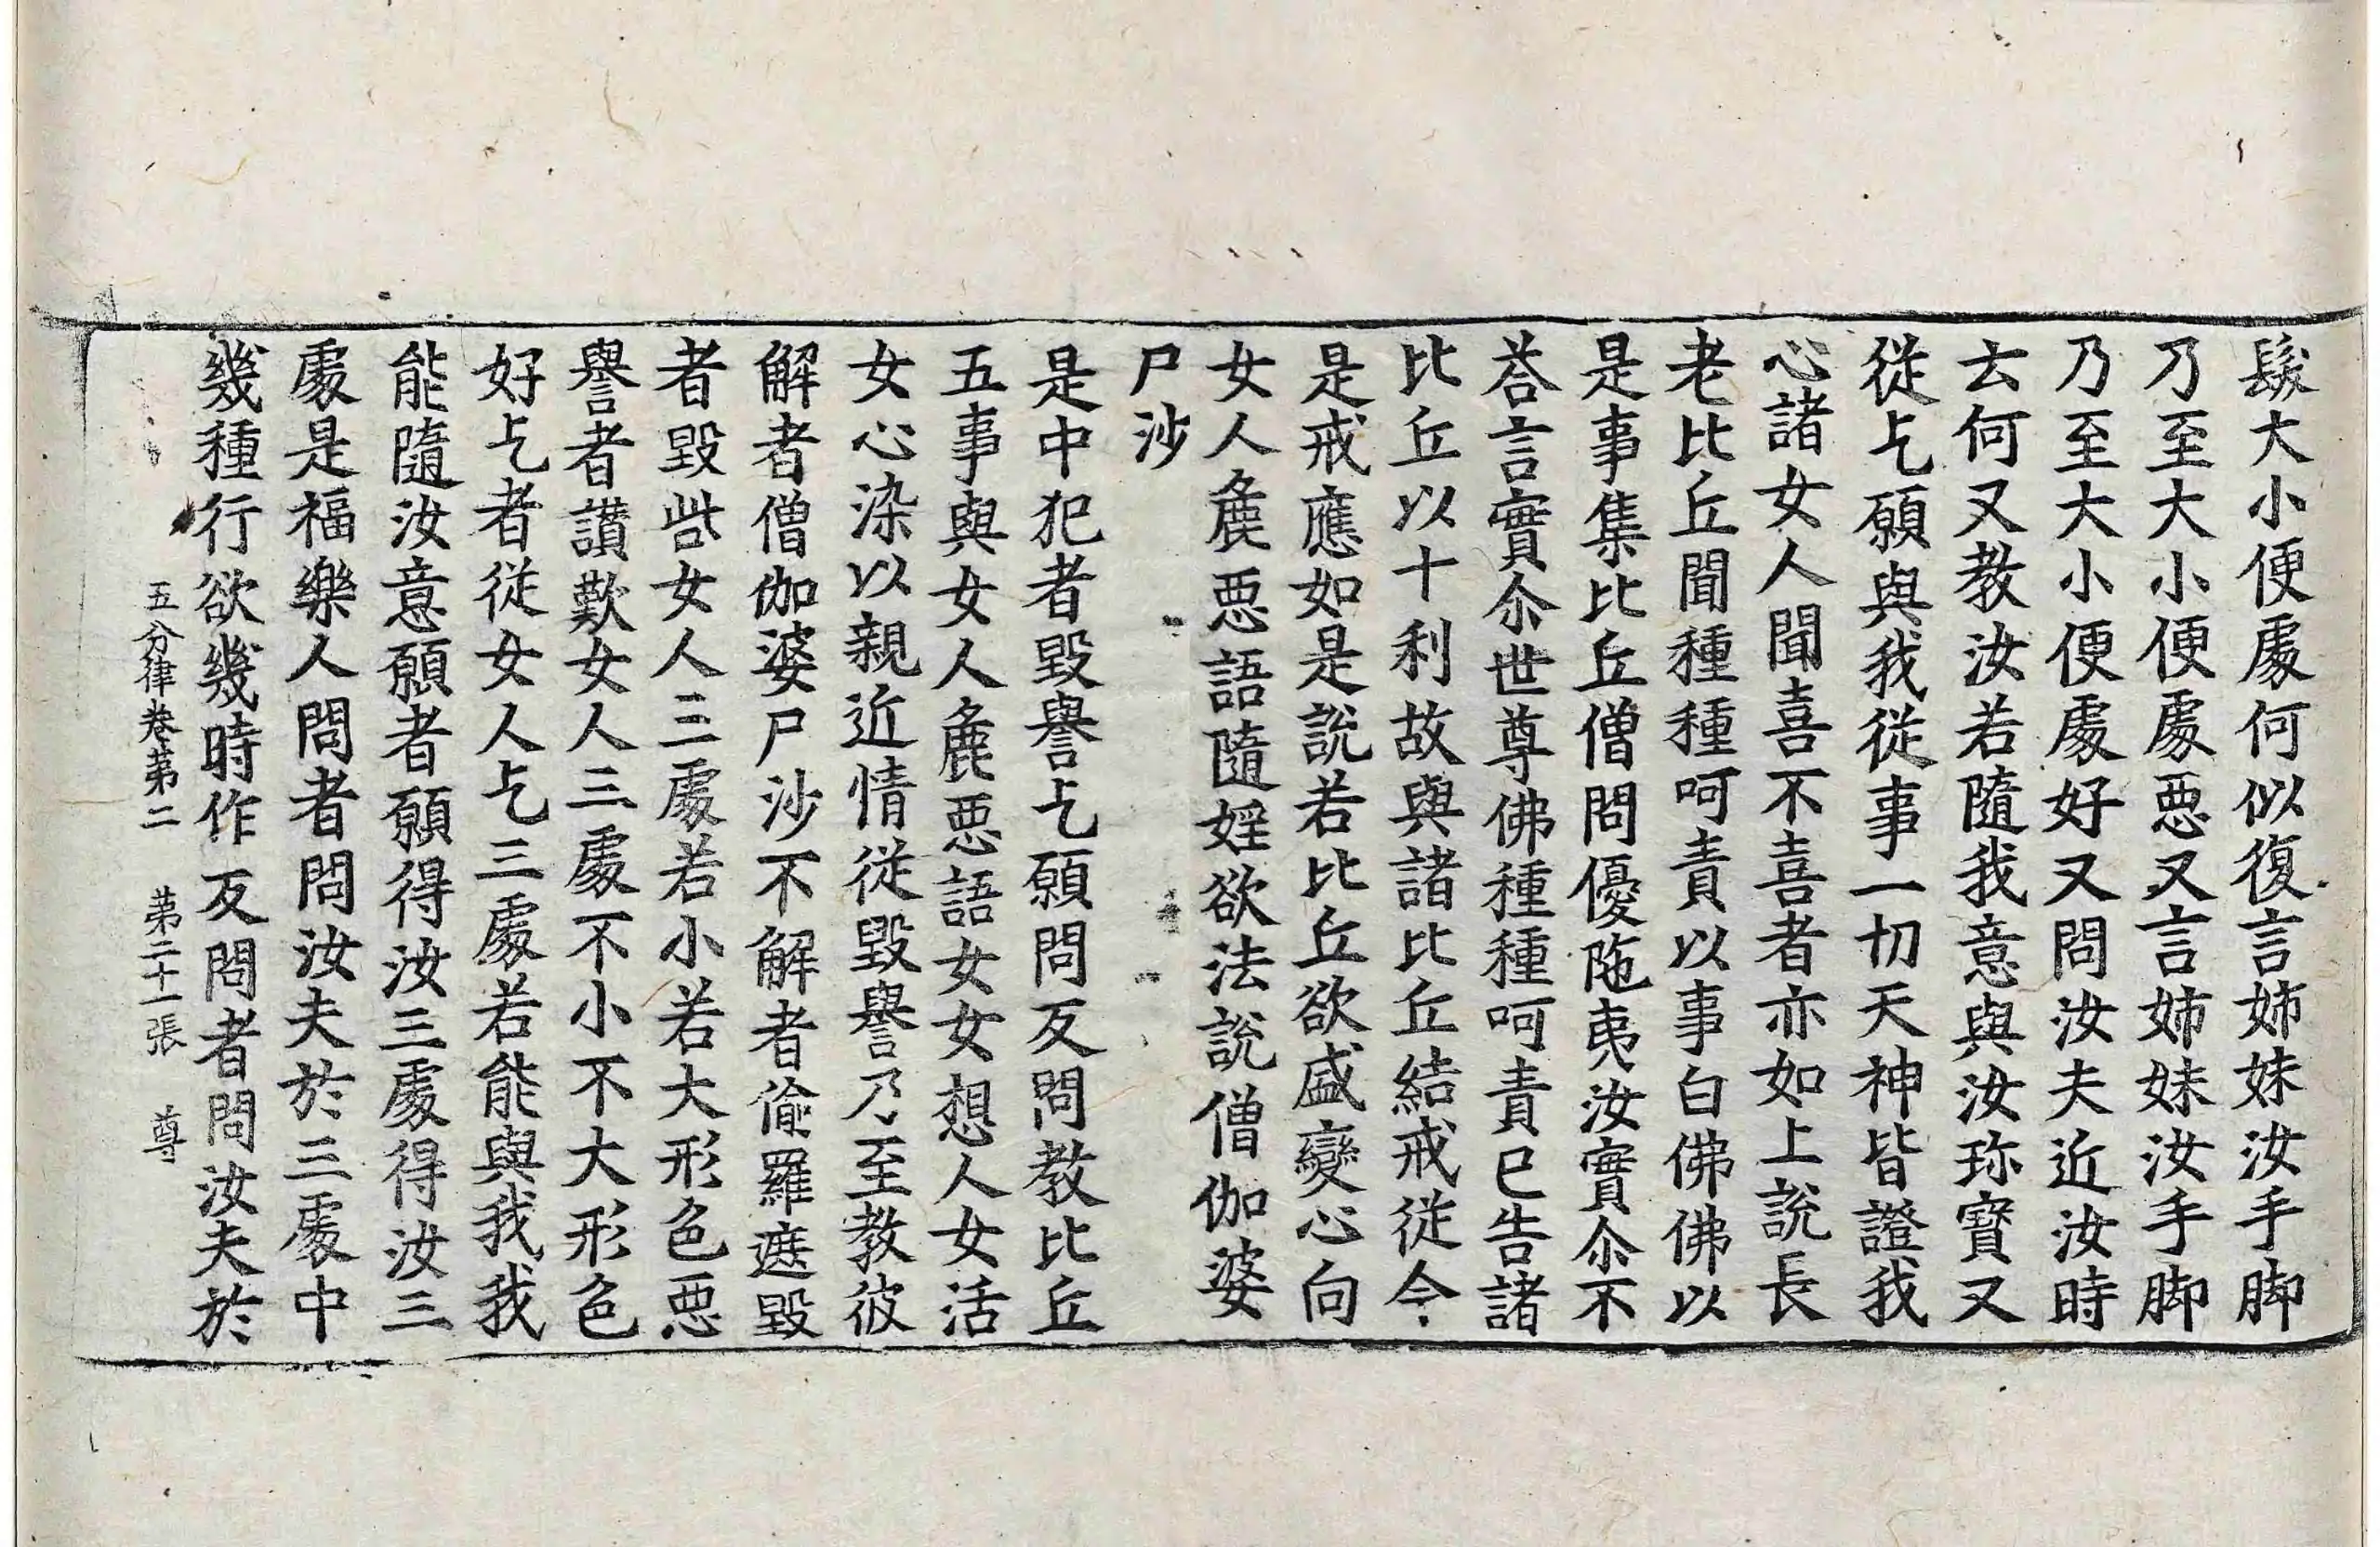 髮大小便處何似復言姉妹汝手脚
乃至大小便處惡又言姉妹汝手脚
乃至大小便處好又問汝夫近汝時
去何又教汝若隨我意與汝珎寶又
從乞願與我從事一切天神皆證我
心諸女人聞喜不喜者亦如上說長
老比丘聞種種呵責以事白佛佛以
是事集比丘僧問優陁夷汝實尒不
荅言實尒世尊佛種種呵責已告諸
比丘以十利故與諸比丘結戒從今
是戒應如是說若比丘欲盛變心向
女人麁惡語隨婬欲法說僧伽婆
尸沙
是中犯者毀譽乞願問反問教比丘
五事與女人麁惡語女女想人女活
女心染以親近情從毀譽乃至教彼
解者僧伽婆尸沙不解者偷羅遮毀
者毀呰女人三處若小若大形色惡
譽者讃歎女人三處不小不大形色
好乞者從女人乞三處若能與我我
能隨汝意願者願得汝三處得汝三
處是福樂人問者問汝夫於三處中
幾種行欲幾時作反問者問汝夫於
五分律卷苐二 苐二十一張 尊